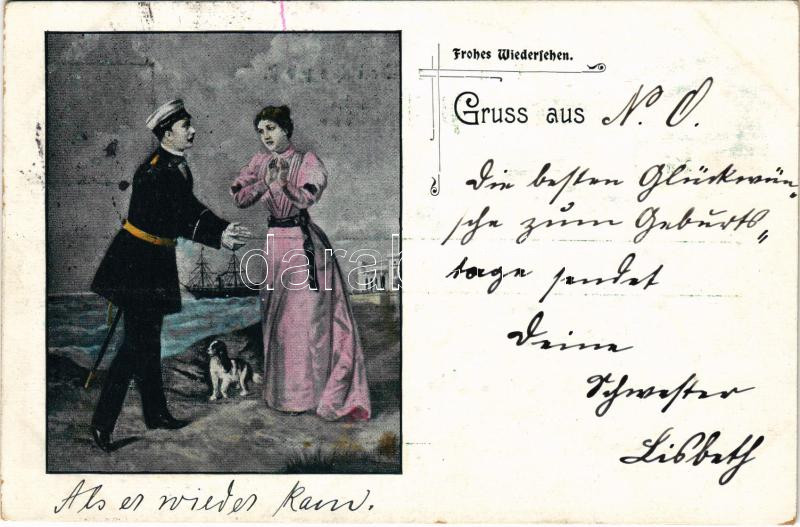 Frohes Wiedersehen.
Gruss aus N. O.
Die besten Glückwün-
sche zum Geburts„
tage sendet
Deine
Schwester
Lisbeth
Als er wieder kam.
darab